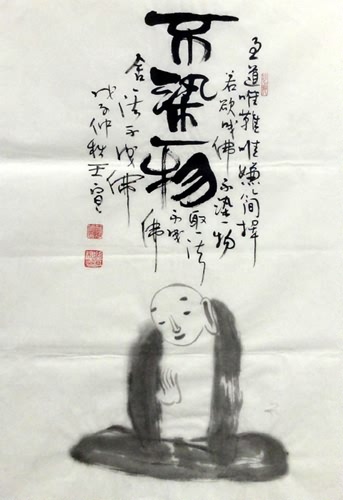 不染一物
至道唯難唯嫌簡擇
若欲成佛不染一物
取法
不成
佛
舍法不成佛
戊子仲秋士